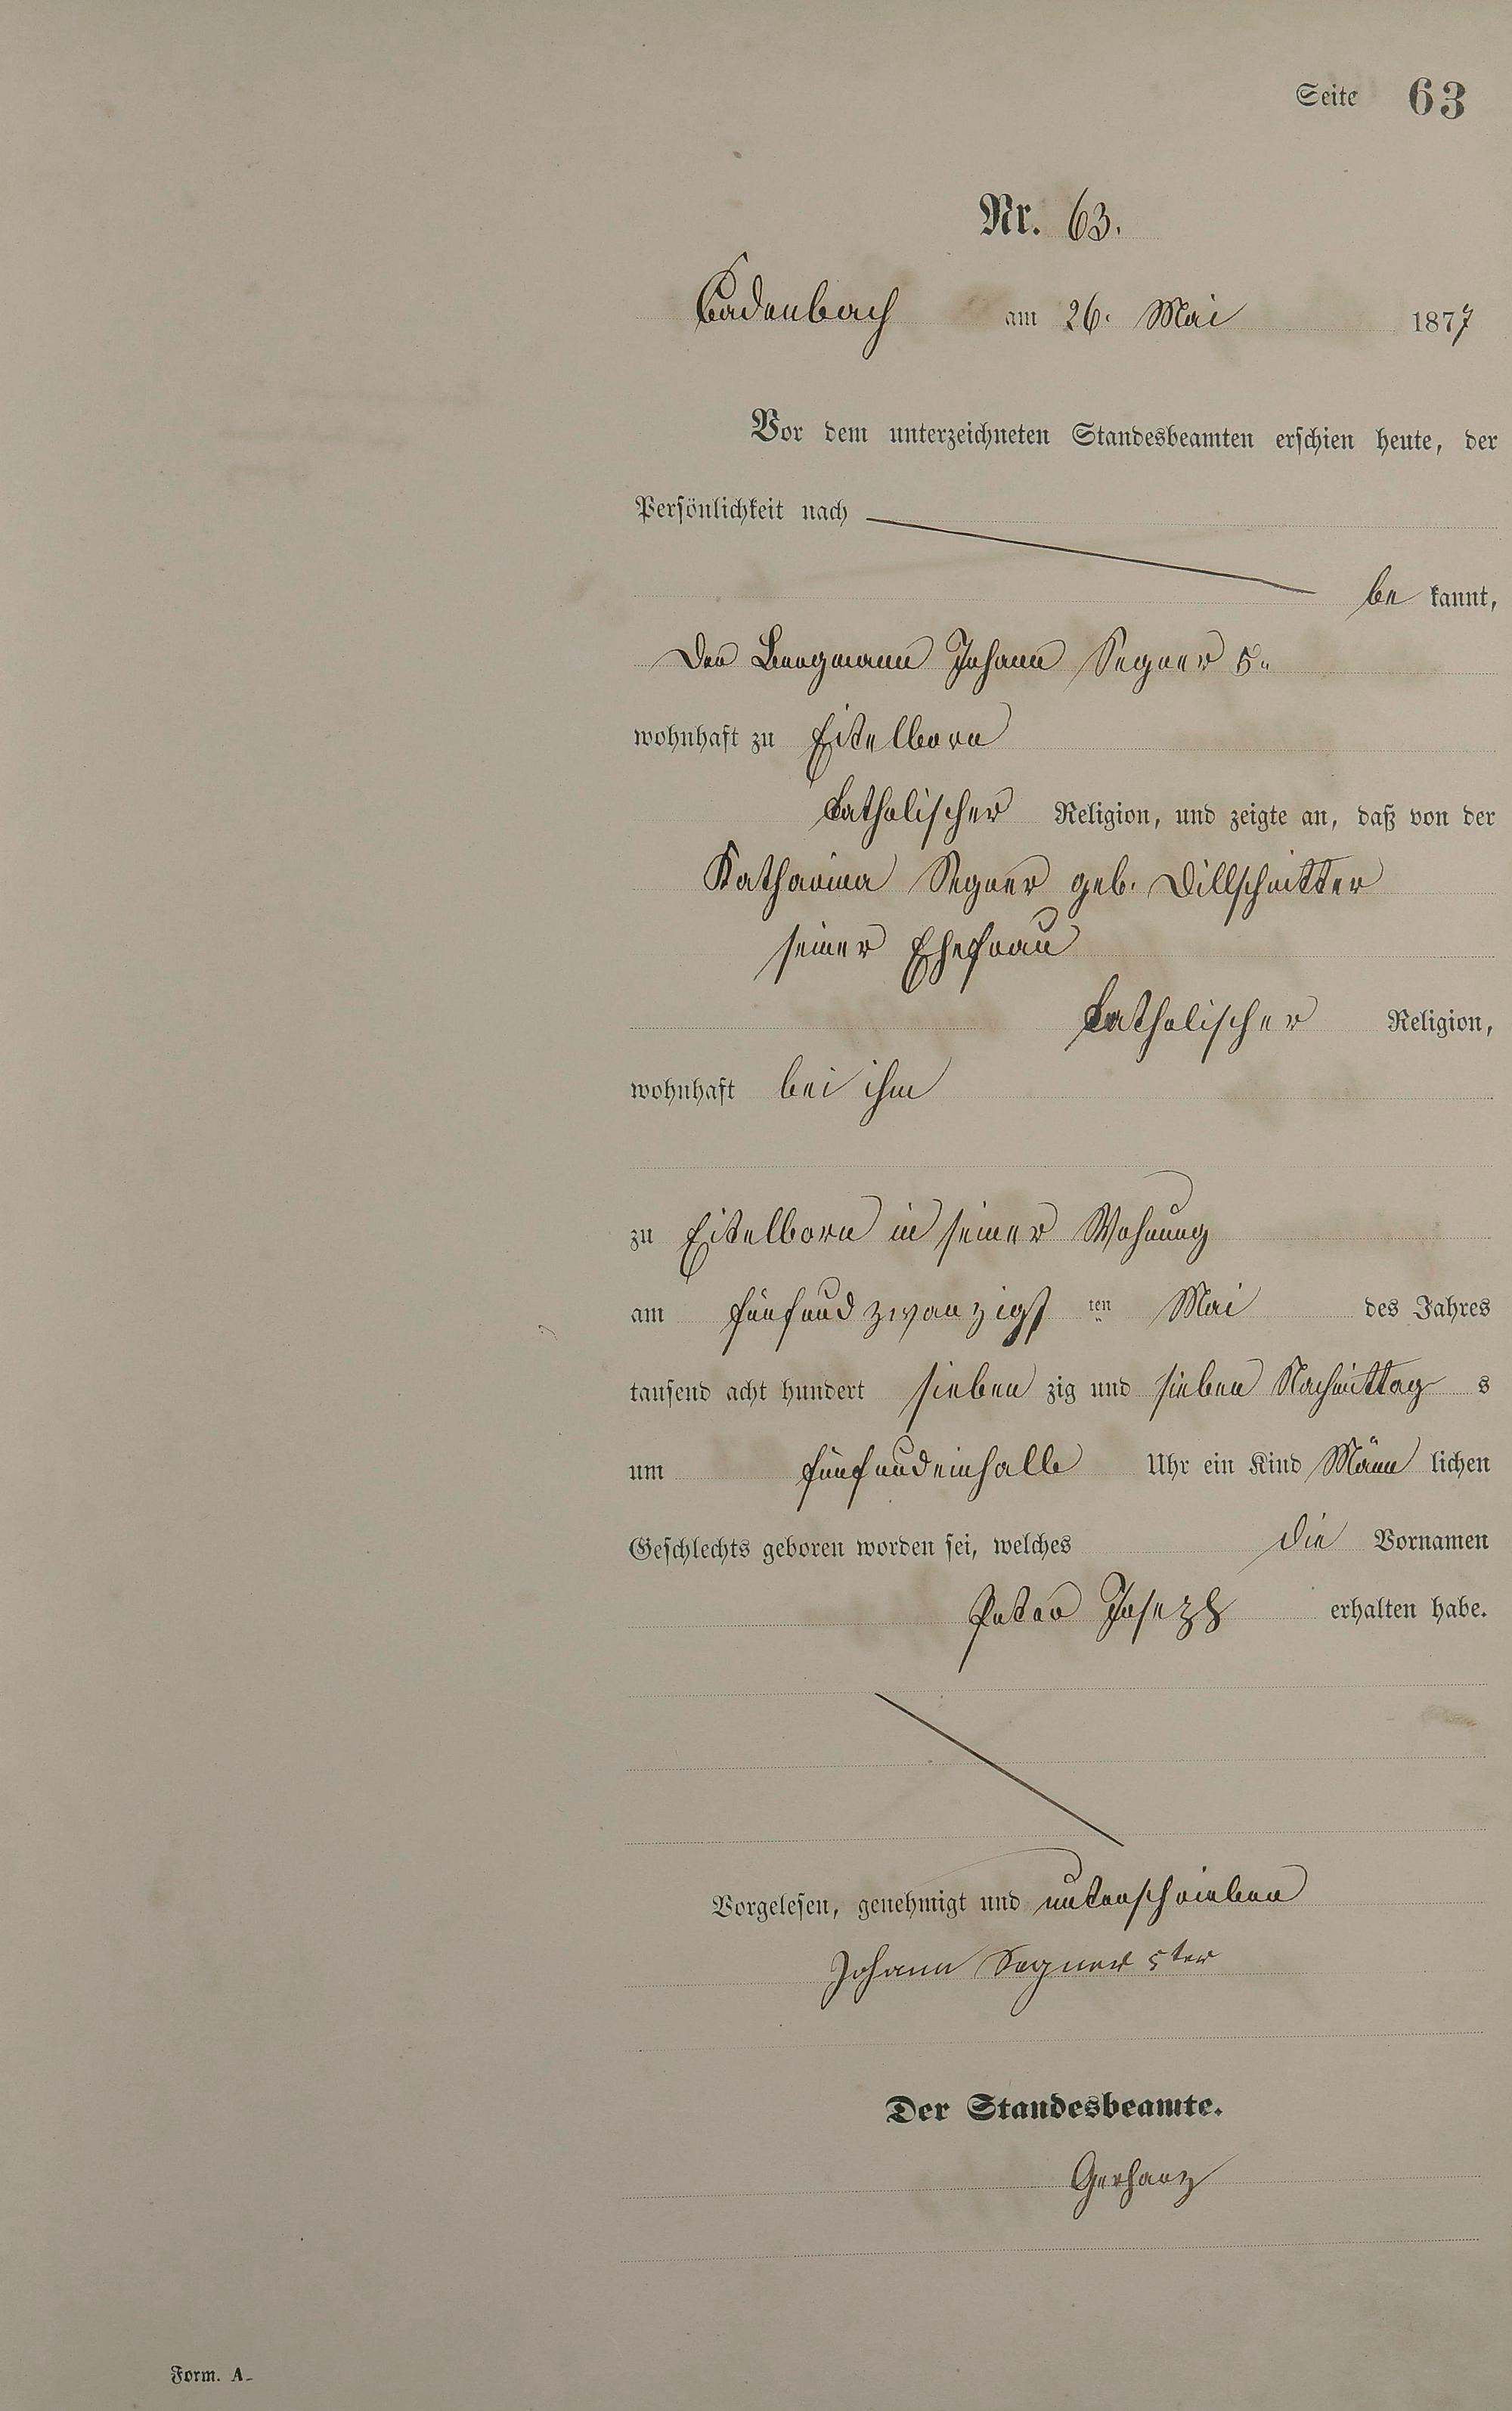 Seite 63
Nr. 63.
Cadenbach am 26. Mai 1877
Vor dem unterzeichneten Standesbeamten erschien heute, der
Persönlichkeit nach
be kannt,
Der Bergmann Johann Segner 5.
wohnhaft zu Eitelborn
katholischer Religion, und zeigte an, daß von der
Katharina Segner geb. Dillschnitter
seiner Ehefrau
katholischer Religion,
wohnhaft bei ihm
zu Eitelborn in seiner Wohnung
am fünfundzwanzigst ten Mai des Jahres
tausend acht hundert sieben zig und sieben Nachmittag s
um fünfundeinhalb Uhr ein Kind Männ lichen
Geschlechts geboren worden sei, welches die Vornamen
Peter Joseph erhalten habe.
Vorgelesen, genehmigt und unterschrieben
Johann Segner 5ter
Der Standesbeamte.
Gerharz
Form. A.